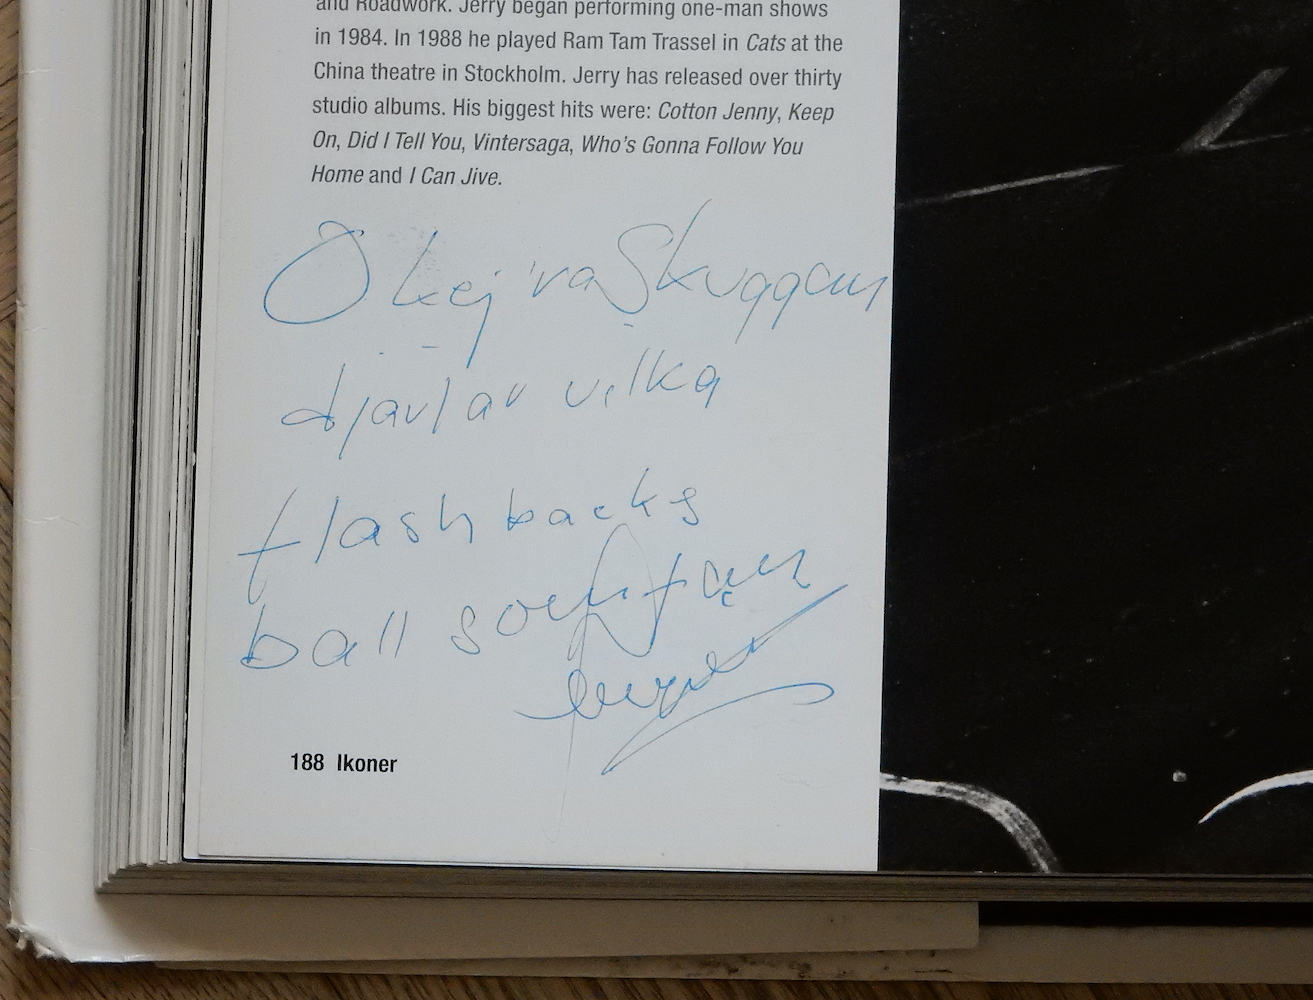 and Roadwork. Jerry began performing one-man shows
in 1984. In 1988 he played Ram Tam Trassel in Cats at the
China theatre in Stockholm. Jerry has released over thirty
studio albums. His biggest hits were: Cotton Jenny, Keep
On, Did I Tell You, Vintersaga, Who's Gonna Follow You
Home and I Can Jive.
Okej 'ra Skuggan
djävlar vilka
flashbacks
ball som fan
188 Ikoner